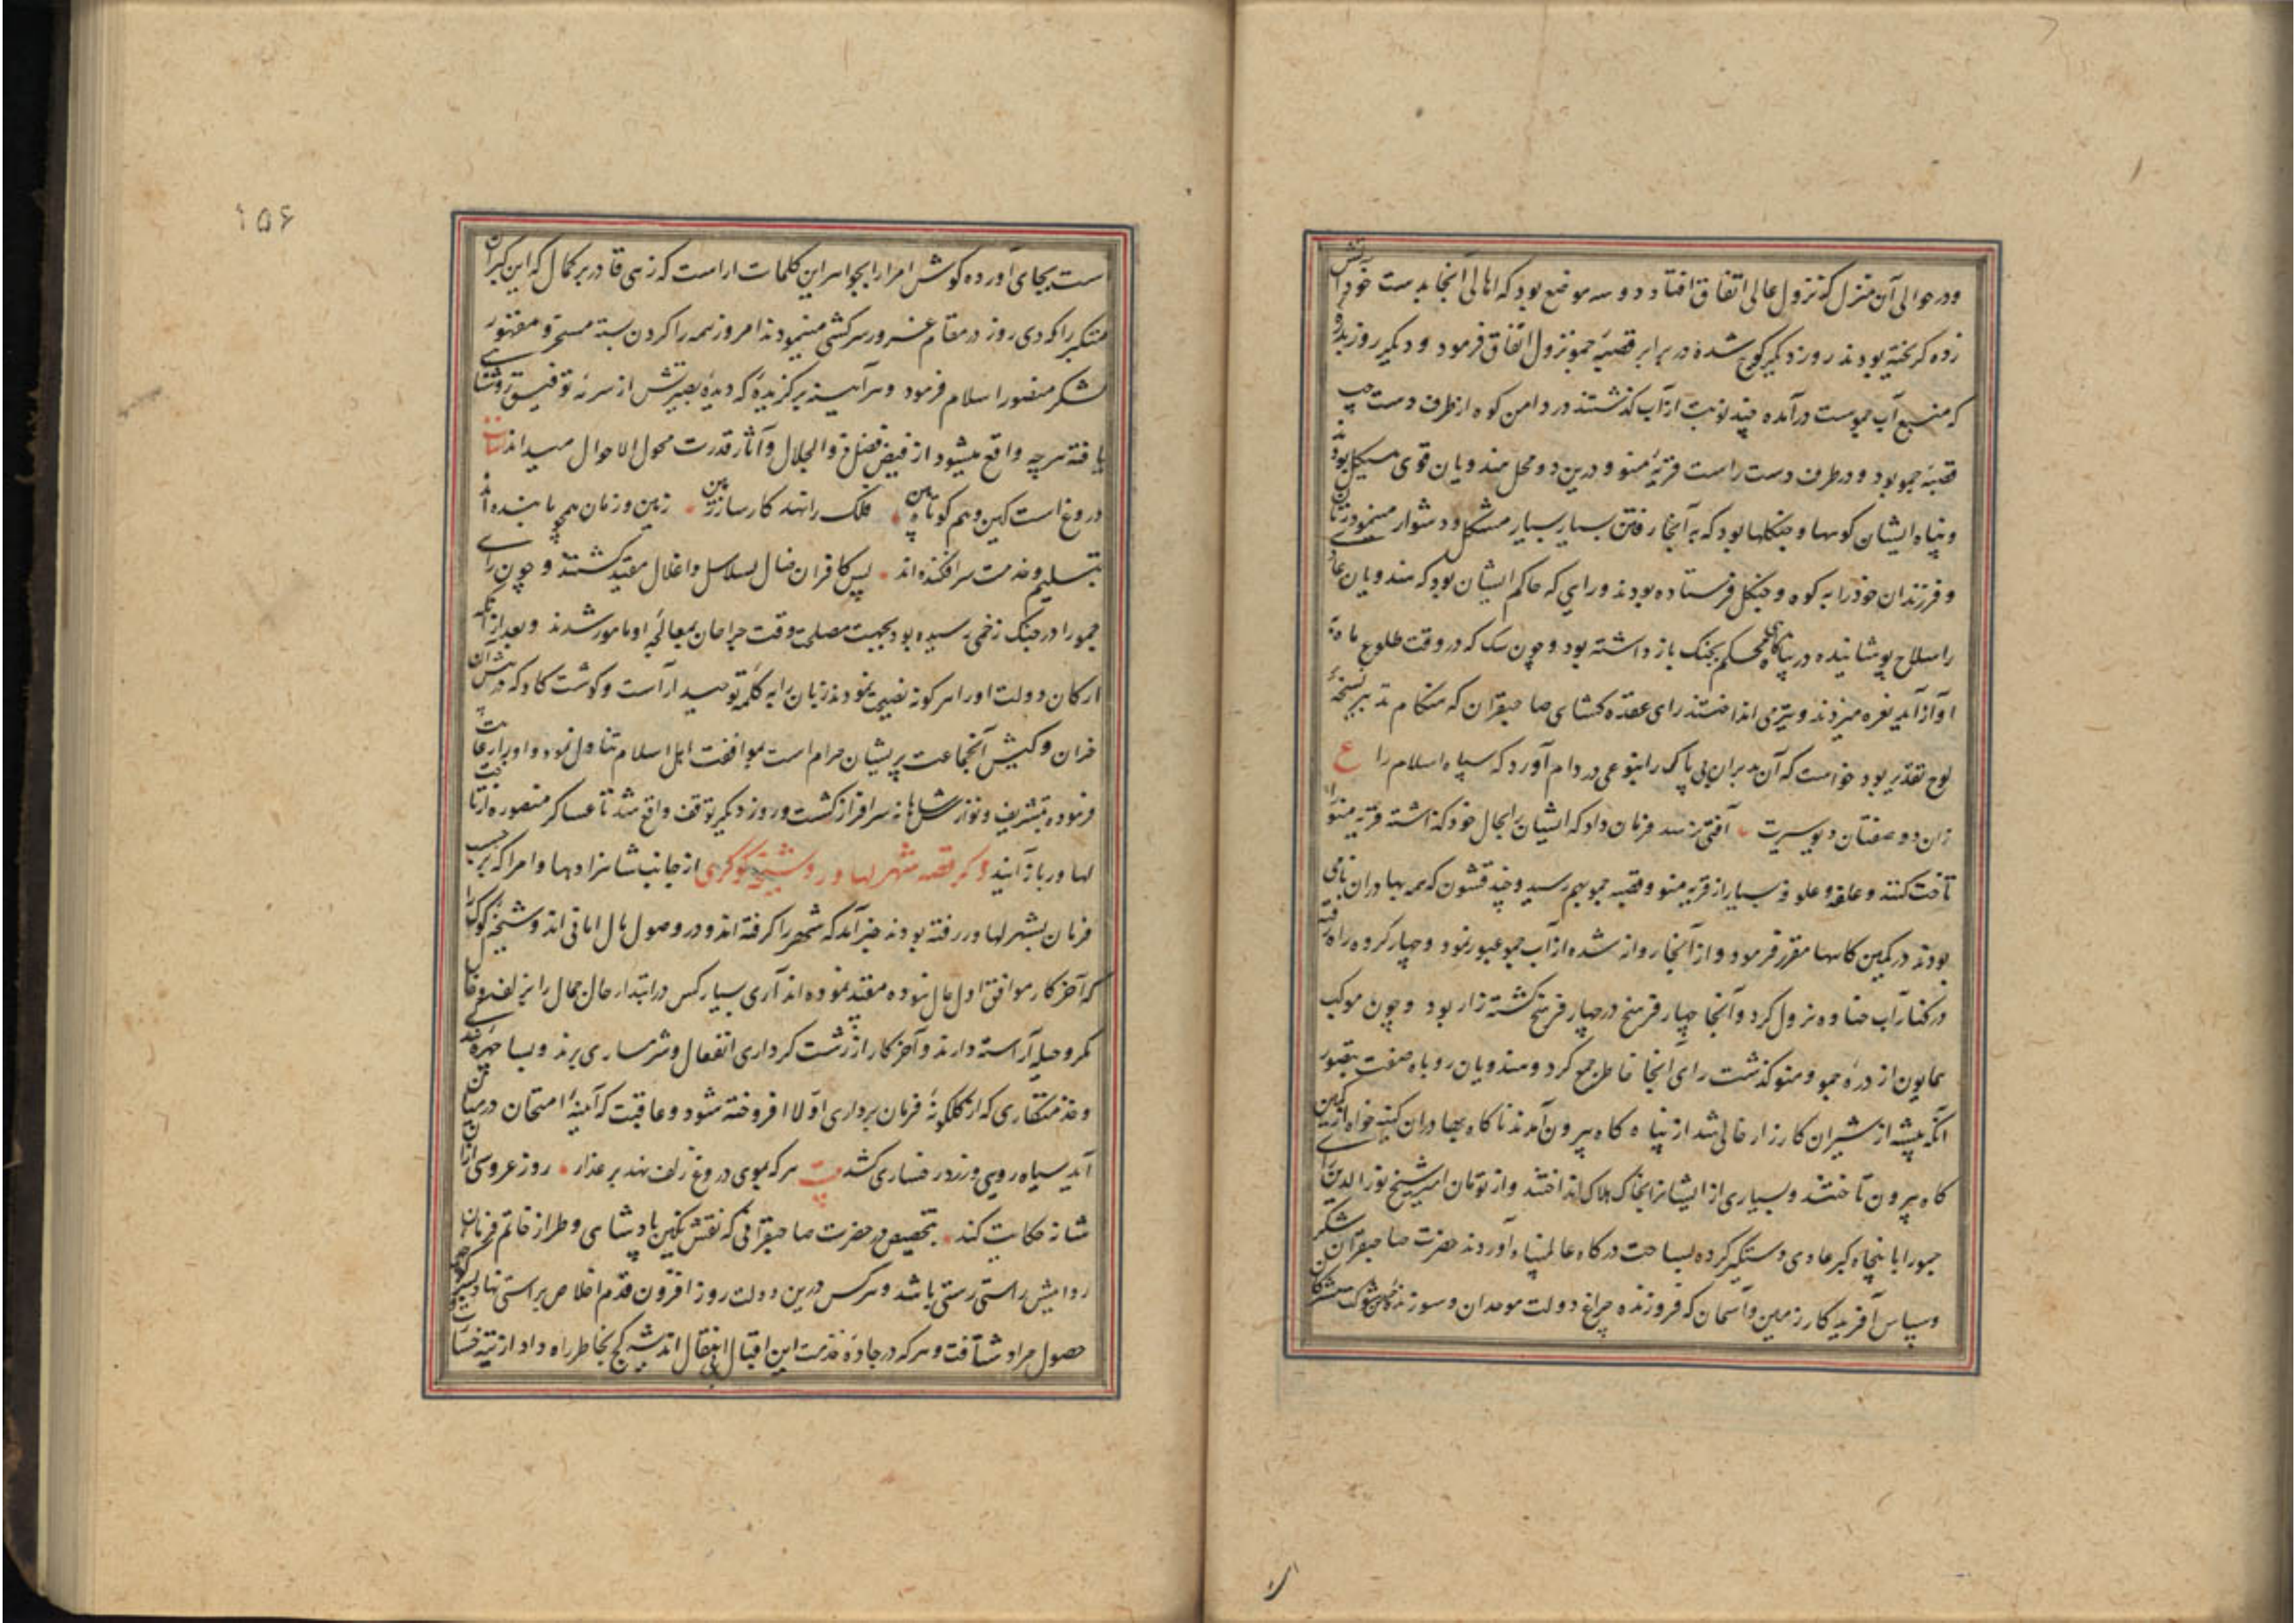 ودر حوالی آن منزل که نزول عالی اتفاق افتاد دو سه موضع بود که اهالی آنجا بدست خود آتش
زده کریخته بودند روز دیکر کوچ شده در برابر قصبهٔ جمو نزول اتفاق فرمود و دیکر روز بدره
که منبع آب جموست درآمده چند نوبت از آب کذشتند در دامن کوه از طرف دست چپ
قصبهٔ جمو بود و در طرف دست راست قریهٔ منو و درین دو محل هندویان قوی هیکل بودند
و پناه ایشان کوهها و جنکلها بود که به آنجا رفتن بسیار بسیار مشکل و دشوار مینمود زنان
و فرزندان خود را به کوه و جنکل فرستاده بودند و رایی که حاکم ایشان بود که هندویان عادی
را سلاح پوشانیده در پناه کاهی محکم بجنک باز داشته بود و چون سک که در وقت طلوع ماه به
آواز آید نعره میزدند و تیر می انداختند رای عقده کشای صاحبقران که هنکام تدبیر نسخهٔ
لوح تقدیر بود خواست که آن مدبران بی باک را بنوعی در دام آورد که سپاه اسلام را ع
زان دد صفتان دیو سیرت آفتی نرسد فرمان داد که ایشانرا بحال خود کذاشته قریه منو را
تاخت کنند و علفه و علوفهٔ بسیار از قریه منو و قصبه جمو بهم رسید و چند قشون که همه بهادران نامی
بودند در کمین کاهها مقرر فرمود و از آنجا روانه شده از آب جمو عبور نمود و چهار کروه راه رفته
در کنار آب جناوه نزول کرد و آنجا چهار فرسخ در چهار فرسخ کشته زار بود و چون موکب
همایون از درهٔ جمو و منو کذشت رای آنجا خاطر جمع کرد و هندویان روباه صفت بتصور
آنکه بیشه از شیران کارزار خالی شد از پناه کاه بیرون آمدند ناکاه بهادران کینه خواه از کمین
کاه بیرون تاختند و بسیاری از ایشانرا بخاک هلاک انداختند و از تومان امیر شیخ نورالدین رای
جمو را با پنجاه کبر عادی دستکیر کرده بساحت درکاه عالمپناه آوردند حضرت صاحبقران شکر
و سپاس آفریدکار زمین و آسمان که فروزنده چراغ دولت موحدان و سوزنده خرمن شوکت مشرکان
۱۵۶
است بجای آورده کوش امرا را بجواهر این کلمات آراست که زهی قادر بر کمال که این کبران
متکبر را که دی روز در مقام غرور سرکشی مینمودند امروز همه را کردن بسته مسخر و مقهور
لشکر منصور اسلام فرمود و هر آینه برکزیدهٔ که دیدهٔ بصیرتش از سرمهٔ توفیق روشنایی
یافته هر چه واقع میشود از فیض فضل ذوالجلال و آثار قدرت محول الاحوال میداند
دروغ است کین وهم کوتاه بین فلک را نهد کارساز زمین زمین و زمان همچو ما بنده اند
بتسلیم و خدمت سرافکنده اند پس کافران ضال بسلاسل و اغلال مقید کشتند و چون رای
جمو را در جنک زخمی رسیده بود بجهت مصلحت وقت جراحان بمعالجه او مامور شدند و بعد از آنکه
ارکان دولت او را هر کونه نصیحت نمودند زبان را به کلمه توحید آراست و کوشت کاو که در پیش آن
خران و کیش آنجماعت پریشان حرام است بموافقت اهل اسلام تناول نمود و او را رعایت
فرموده بتشریف و نوازش شاهانه سرافراز کشت و روز دیکر توقف واقع شد تا عساکر منصوره از تاخت
لهاور باز آیند ذکر قصه شهر لهاور و شیخهٔ کوکری از جانب شاهزادها و امرا که بر حسب
فرمان بشهر لهاور رفته بودند خبر آمد که شهر را کرفته اند و در وصول مال امانی اند و شیخهٔ کوکر را
که آخر کار موافق اول حال نبوده مقید نموده اند آری بسیار کس در ابتدا حال جمال را بزلف وفا
مکر و حیله آراسته دارند و آخر کار از زشت کرداری انفعال و شرمساری برند و بسا چهرهٔ
خدمتکاری که از کلکونهٔ فرمان برداری اولا افروخته شود و عاقبت که آیینهٔ امتحان در میان
آید سیاه رویی و زرد رخساری کشد بیت هر که بموی دروغ زلف نهد بر عذار روز عروسی ازان
شانه حکایت کند بتخصیص در حضرت صاحبقرانی که نقش نکین پادشاهی و طراز خاتم فرمان
روائیش راستی رستی باشد و هر کس درین دولت روز افزون قدم اخلاص براستی نهاد
حصول مراد شتافت و هر که در جادهٔ خدمت این اقبال بی انتقال اندیشه کج بخاطر راه داد از تیه